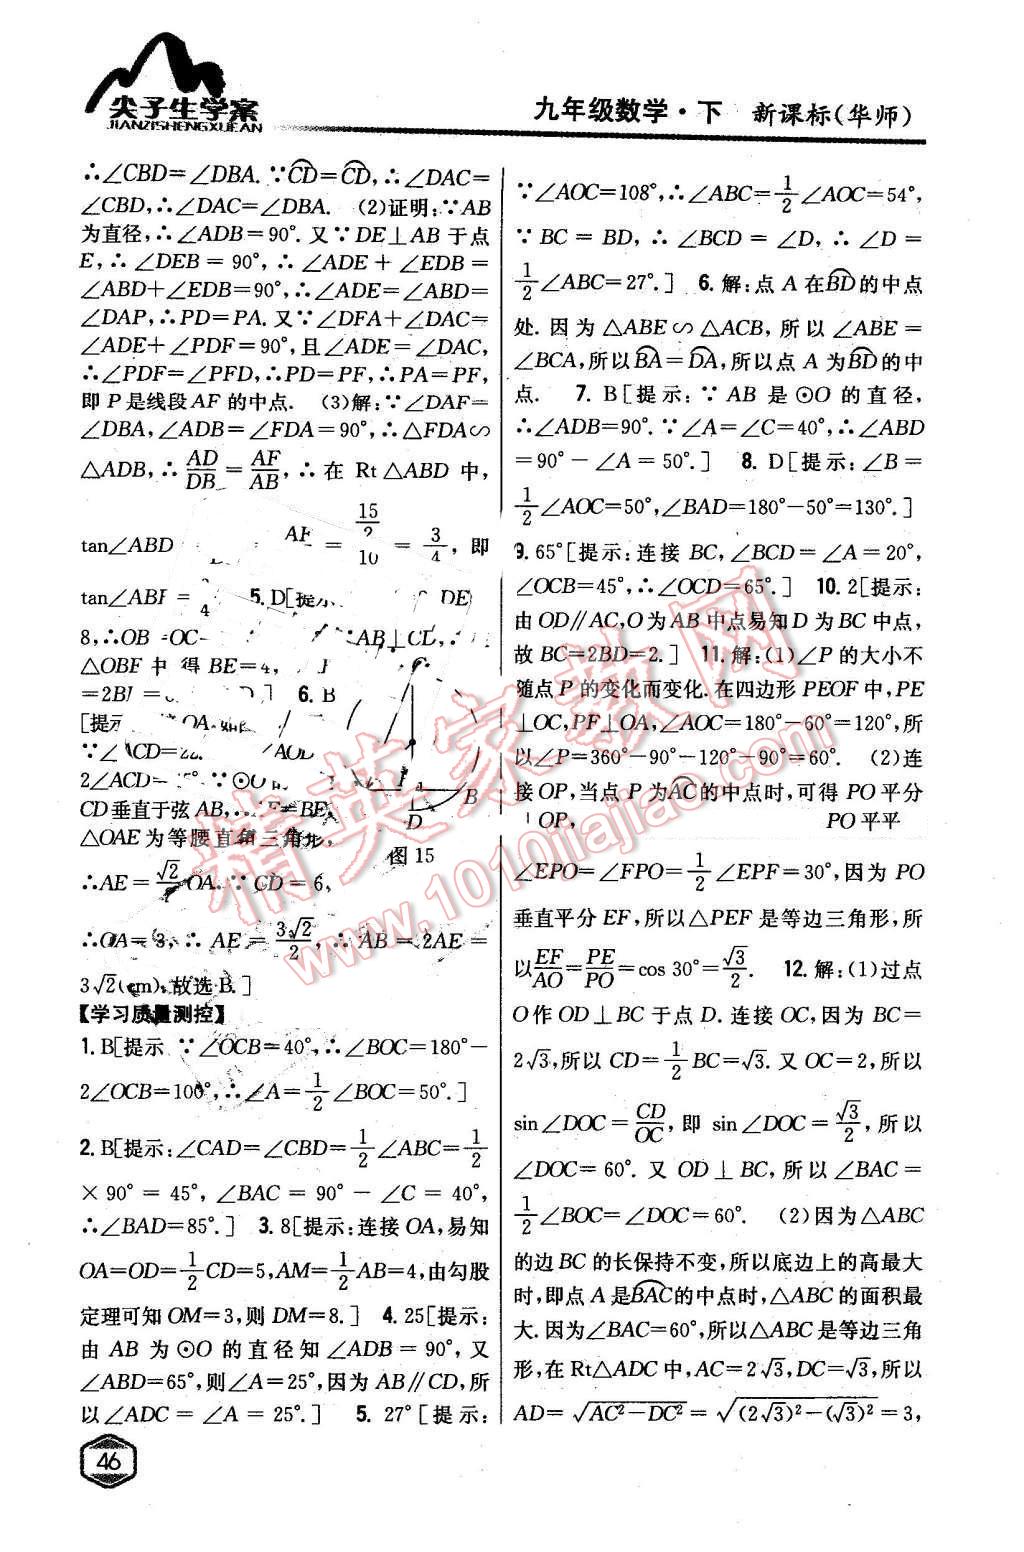 尖子生学案
JIANZISHENGXUEAN
九年级数学·下 新课标(华师)
∴∠CBD=∠DBA.∵CD=CD,∴∠DAC=
∠CBD,∴∠DAC=∠DBA. (2)证明:∵AB
为直径,∴∠ADB=90°.又∵DE⊥AB于点
E,∴∠DEB=90°,∴∠ADE+∠EDB=
∠ABD+∠EDB=90°,∴∠ADE=∠ABD=
∠DAP,∴PD=PA.又∵∠DFA+∠DAC=
∠ADE+∠PDF=90°,且∠ADE=∠DAC,
∴∠PDF=∠PFD,∴PD=PF,∴PA=PF,
即P是线段AF的中点. (3)解:∵∠DAF=
∠DBA,∠ADB=∠FDA=90°,∴△FDA∽
△ADB,∴AD/DB=AF/AB,∴在Rt△ABD中,
tan∠ABD = = 3/4,即
5. D[提示
8,∴OB ∵AB⊥CD,
△OBF 中 得 BE=4,
6. B
[提示
CD垂直于弦AB,
△OAE为等腰直角三角形,
图15
D B
∴AE=√2/2 OA.∵CD=6,
∴OA=3,∴AE=3√2/2,∴AB=2AE=
3√2(cm),故选B.]
【学习质量测控】
1. B[提示 ∵∠OCB=40°,∴∠BOC=180°-
2∠OCB=100°,∴∠A=1/2∠BOC=50°.]
2. B[提示:∠CAD=∠CBD=1/2∠ABC=1/2
×90°=45°,∠BAC=90°-∠C=40°,
∴∠BAD=85°.] 3. 8[提示:连接OA,易知
OA=OD=1/2CD=5,AM=1/2AB=4,由勾股
定理可知OM=3,则DM=8.] 4. 25[提示:
由AB为⊙O的直径知∠ADB=90°,又
∠ABD=65°,则∠A=25°,因为AB∥CD,所
以∠ADC=∠A=25°.] 5. 27°[提示:
46
∵∠AOC=108°,∴∠ABC=1/2∠AOC=54°,
∵BC=BD,∴∠BCD=∠D,∴∠D=
1/2∠ABC=27°.] 6. 解:点A在BD的中点
处.因为△ABE∽△ACB,所以∠ABE=
∠BCA,所以BA=DA,所以点A为BD的中
点. 7. B[提示:∵AB是⊙O的直径,
∴∠ADB=90°.∵∠A=∠C=40°,∴∠ABD
=90°-∠A=50°.] 8. D[提示:∠B=
1/2∠AOC=50°,∠BAD=180°-50°=130°.]
9. 65°[提示:连接BC,∠BCD=∠A=20°,
∠OCB=45°,∴∠OCD=65°.] 10. 2[提示:
由OD∥AC,O为AB中点易知D为BC中点,
故BC=2BD=2.] 11. 解:(1)∠P的大小不
随点P的变化而变化.在四边形PEOF中,PE
⊥OC,PF⊥OA,∠AOC=180°-60°=120°,所
以∠P=360°-90°-120°-90°=60°. (2)连
接OP,当点P为AC的中点时,可得PO平分
OP, PO平平
∠EPO=∠FPO=1/2∠EPF=30°,因为PO
垂直平分EF,所以△PEF是等边三角形,所
以EF/AO=PE/PO=cos 30°=√3/2. 12. 解:(1)过点
O作OD⊥BC于点D.连接OC,因为BC=
2√3,所以CD=1/2BC=√3.又OC=2,所以
sin∠DOC=CD/OC,即sin∠DOC=√3/2,所以
∠DOC=60°.又OD⊥BC,所以∠BAC=
1/2∠BOC=∠DOC=60°. (2)因为△ABC
的边BC的长保持不变,所以底边上的高最大
时,即点A是BAC的中点时,△ABC的面积最
大.因为∠BAC=60°,所以△ABC是等边三角
形,在Rt△ADC中,AC=2√3,DC=√3,所以
AD=√(AC²-DC²)=√((2√3)²-(√3)²)=3,
精英家教网
www.1010jiajiao.com